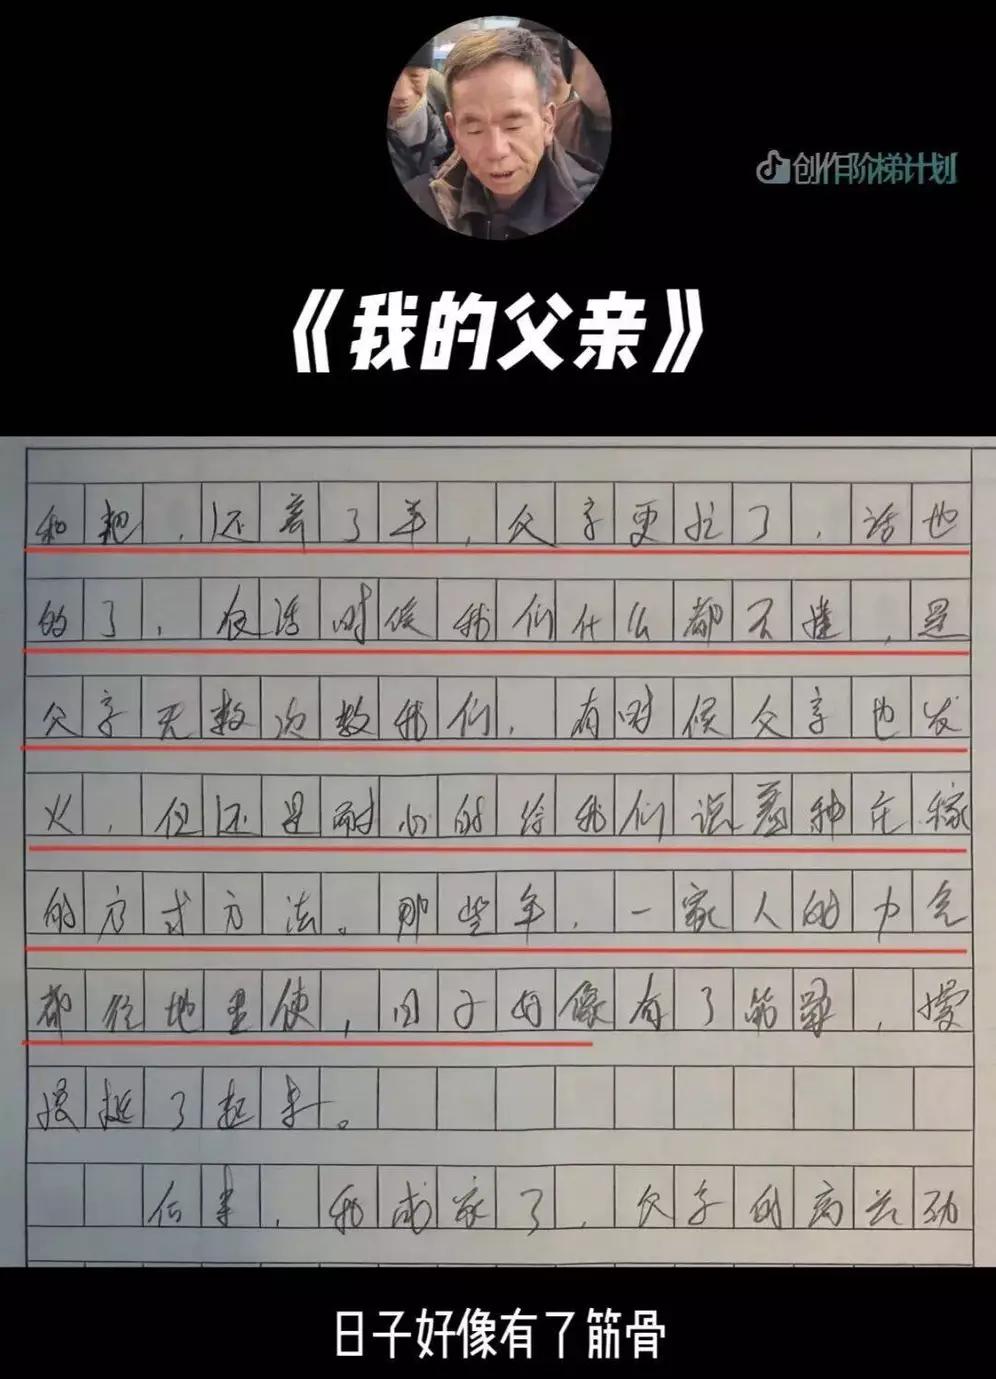 创作阶梯计划
《我的父亲》
和耙,还有了车,父亲更忙了,话也
的了,农活时候我们什么都不懂,是
父亲无数次教我们,有时候父亲也发
火,但还是耐心的给我们说着种庄稼
的方式方法。那些年,一家人的力气
都往地里使,日子好像有了筋骨,慢
慢挺了起来。
后来,我成家了,父亲的高兴劲
日子好像有了筋骨